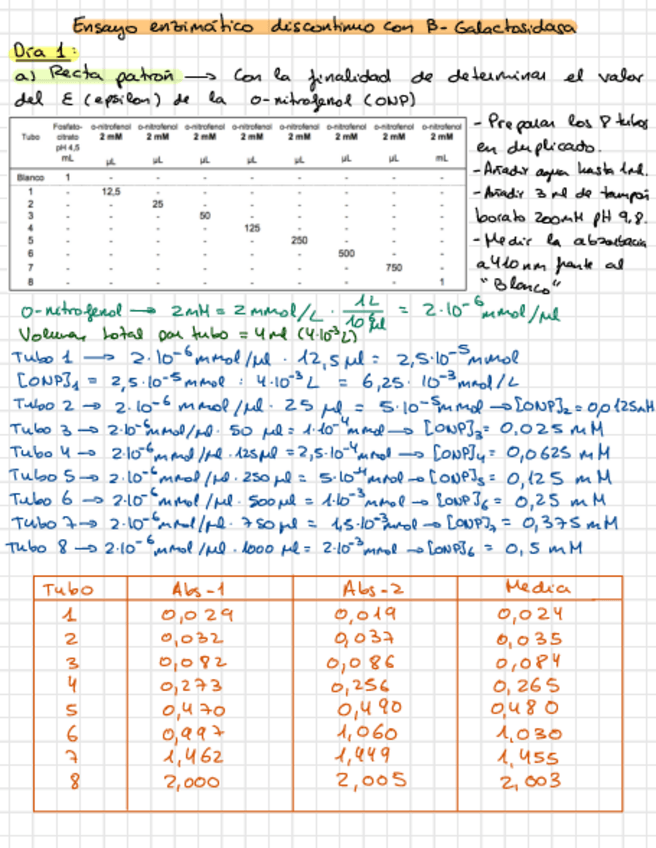 Ensayo enzimático discontinuo con B-Galactosidasa
Día 1:
a) Recta patrón → Con la finalidad de determinar el valor
del E (epsilon) de la o-nitrofenol (ONP)
Tubo Fosfato-citrato pH 4,5 o-nitrofenol 2 mM o-nitrofenol 2 mM o-nitrofenol 2 mM o-nitrofenol 2 mM o-nitrofenol 2 mM o-nitrofenol 2 mM o-nitrofenol 2 mM o-nitrofenol 2 mM
mL µL µL µL µL µL µL µL mL
Blanco 1 - - - - - - - -
1 - 12,5 - - - - - - -
2 - - 25 - - - - - -
3 - - - 50 - - - - -
4 - - - - 125 - - - -
5 - - - - - 250 - - -
6 - - - - - - 500 - -
7 - - - - - - - 750 -
8 - - - - - - - - 1
- Preparar los 8 tubos
en duplicado.
- Añadir agua hasta 1ml.
- Añadir 3 ml de tampón
borato 200mM pH 9,8.
- Medir la absorbancia
a 410 nm frente al
"Blanco"
o-nitrofenol → 2mM = 2 mmol/L · 1L / 10⁶ µl = 2·10⁻⁶ mmol/µl
Volumen total por tubo = 4ml (4·10⁻³L)
Tubo 1 → 2·10⁻⁶ mmol/µl · 12,5 µl = 2,5·10⁻⁵ mmol
[ONP]₁ = 2,5·10⁻⁵ mmol : 4·10⁻³ L = 6,25·10⁻³ mmol/L
Tubo 2 → 2·10⁻⁶ mmol/µl · 25 µl = 5·10⁻⁵ mmol → [ONP]₂ = 0,0125mM
Tubo 3 → 2·10⁻⁶ mmol/µl · 50 µl = 1·10⁻⁴ mmol → [ONP]₃ = 0,025 mM
Tubo 4 → 2·10⁻⁶ mmol/µl · 125 µl = 2,5·10⁻⁴ mmol → [ONP]₄ = 0,0625 mM
Tubo 5 → 2·10⁻⁶ mmol/µl · 250 µl = 5·10⁻⁴ mmol → [ONP]₅ = 0,125 mM
Tubo 6 → 2·10⁻⁶ mmol/µl · 500 µl = 1·10⁻³ mmol → [ONP]₆ = 0,25 mM
Tubo 7 → 2·10⁻⁶ mmol/µl · 750 µl = 1,5·10⁻³ mmol → [ONP]₇ = 0,375 mM
Tubo 8 → 2·10⁻⁶ mmol/µl · 1000 µl = 2·10⁻³ mmol → [ONP]₆ = 0,5 mM
Tubo Abs-1 Abs-2 Media
1 0,029 0,019 0,024
2 0,032 0,037 0,035
3 0,082 0,086 0,084
4 0,273 0,256 0,265
5 0,470 0,490 0,480
6 0,997 1,060 1,030
7 1,462 1,449 1,455
8 2,000 2,005 2,003